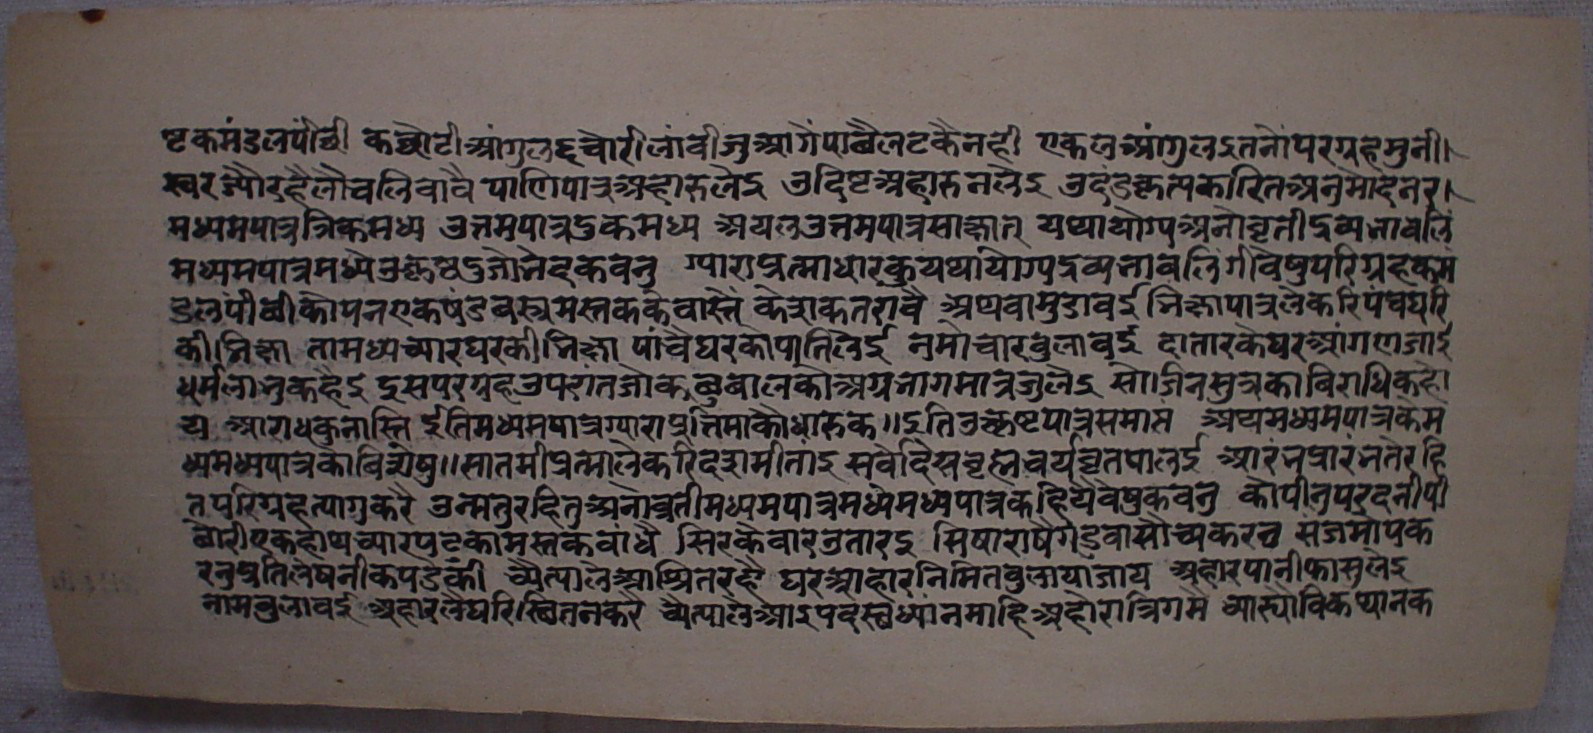 ष्टकमंडलपीछी कछोटीआंगुलइचौरीलांवीजुआगैपाछैलटकैनही एकलआंगुलइतनौपरग्रहमुनी।
स्वरज्यौरहैलौचलिवावै पाणिपात्रअहारुलेइ उदिष्टअहारुनलेइ उदंडकृत्यकारितअनुमोदनर।
मध्यमपात्रत्रिकमध्य उत्तमपात्रटुकमध्य अयलउत्तमपात्रसाक्षात् यथायोग्यअनोवृतीद्रव्यभावलिं
मध्यमपात्रमध्यैउत्कृष्टजोभेदकवनु ग्याराप्रत्माधारकुयथायोग्यद्रव्यभावलिंगीवेषुपरिग्रहकम
डलपीछीकोपनएकषंडवस्त्रमस्तककेवास्तै केशकतरावै अथवामुडावई भिक्षापात्रलेकरिपंचघरि
कीभिक्षा तामध्यच्यारघरकीभिक्षा पांचैघरकोपातिलेई नमोचारवुलावई दातारकैघरआंगणजाई
धर्मलाभुकहेइ इसपरग्रहउपरांतजोकछुवालकोअग्रभागमात्रजुलेइ सोजिनसुत्रकाविराधिकहो
य आराधकुनास्ति ईतिमध्यमपात्रग्याराप्रतिमाकौधारुक॥इतिउत्कृष्टपात्रसमाप्त अथमध्यमपात्रकेम
ध्यमध्यपात्रकोविशेषु॥सातमीप्रत्मालेकरिदशमीतांइ सर्वेदेसवृह्मचर्यवृतपालई आरंभप्रारंभतेरहि
तपरिग्रहत्यागुकरै उन्मतुरहितुअनोवृतीमध्यमपात्रमध्यमध्यपात्रकहियेवेषुकवनु कोपीनुपरदनीपी
छोरीएकहाथच्यारपटकामस्तकवांधै सिरकैवारउतारइ सिषाराषै संजमोपक
रनुप्रतिलेषनीकपडेकी चैत्यालेआश्रितरहै घरआहारनिमितवुलायाजाय अहारपानीफासुलेइ
नामवुलावई अहारलैघरिस्थितनकरे चैत्यालेआइपदस्थध्यानमाहिअहोरात्रिगमै